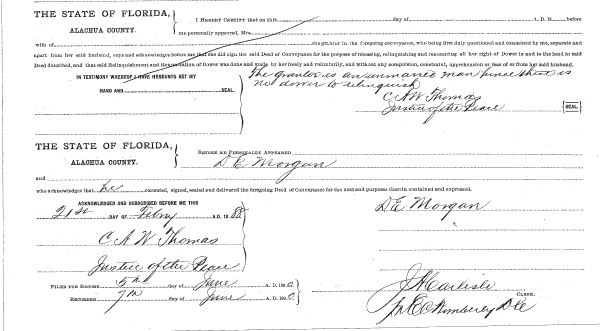 THE STATE OF FLORIDA,
ALACHUA COUNTY.
I HEREBY CERTIFY that on this day of A. D. 18 before
me personally appeared, Mrs.
wife of the grantor in the foregoing conveyance, who being first duly questioned and examined by me, separate and
apart from her said husband, says and acknowledges before me that she did sign the said Deed of Conveyance for the purpose of releasing, relinquishing and renouncing all her right of Dower in and to the land in said
Deed described, and that said Relinquishment and Renunciation of Dower was done and made by her freely and voluntarily, and without any compulsion, constraint, apprehension or fear of or from her said husband.
IN TESTIMONY WHEREOF I HAVE HEREUNTO SET MY
HAND AND SEAL.
The grantor is an unmarried man hence there is
no dower to relinquish
C A W Thomas
Justice of the Peace
SEAL
THE STATE OF FLORIDA,
ALACHUA COUNTY.
BEFORE ME PERSONALLY APPEARED
D E Morgan
and
who acknowledges that he executed, signed, sealed and delivered the foregoing Deed of Conveyance for the uses and purposes therein contained and expressed.
ACKNOWLEDGED AND SUBSCRIBED BEFORE ME THIS
21st DAY OF Febry A.D. 18
C A W Thomas
Justice of the Peace
D E Morgan
FILED FOR RECORD 5th day of June A. D. 188
RECORDED 7th day of June A. D. 188
J H Carlisle
CLERK.
Wimberly D C